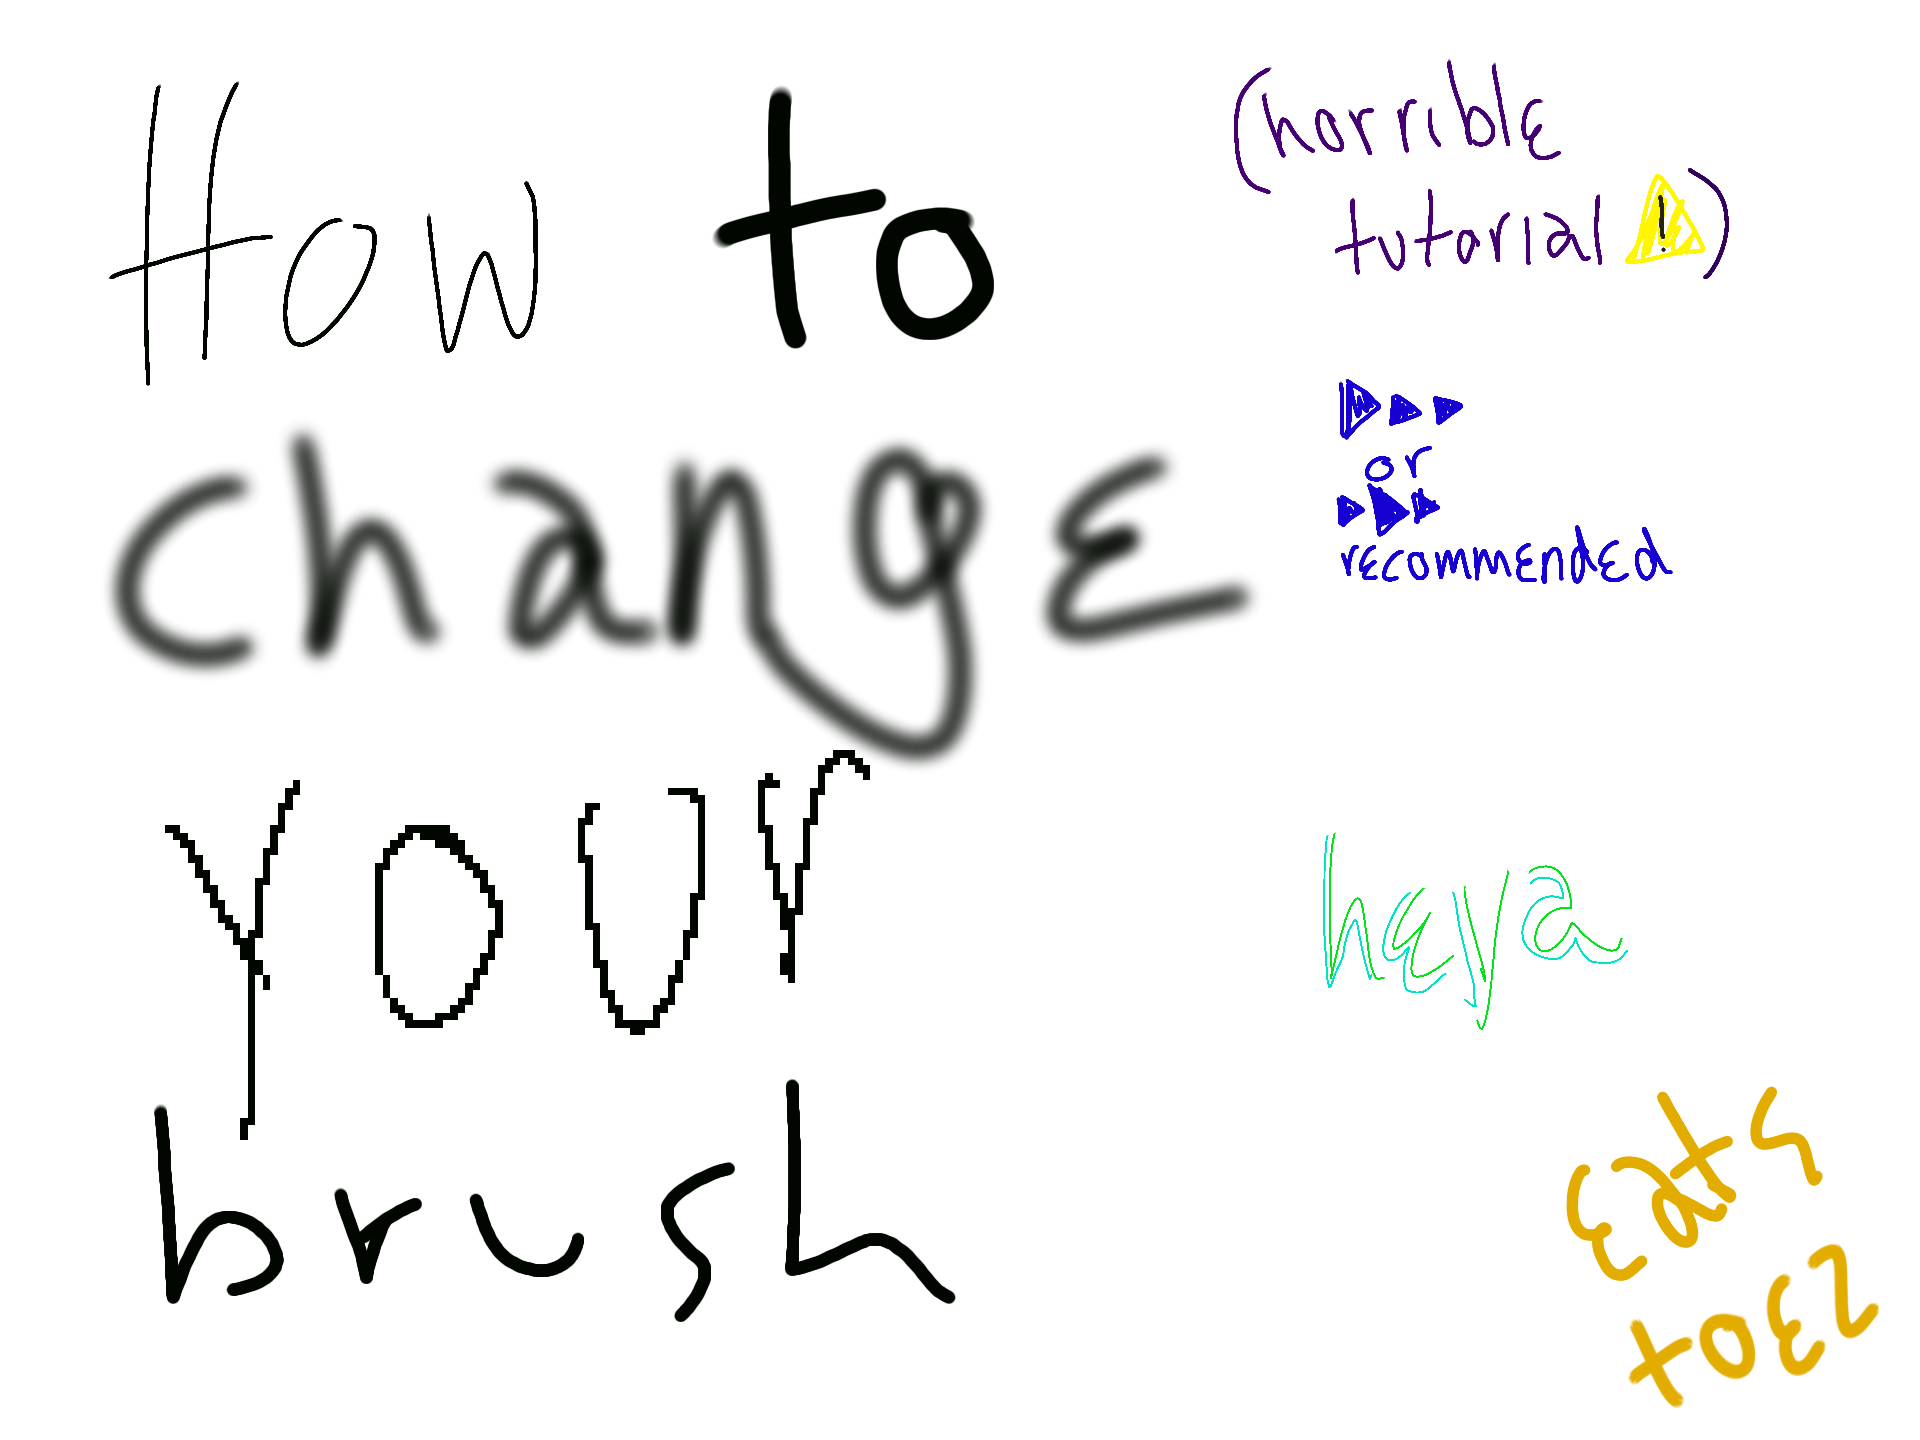 How to
change
your
brush
(horrible
tutorial !)
or
recommended
heya
eats
toez